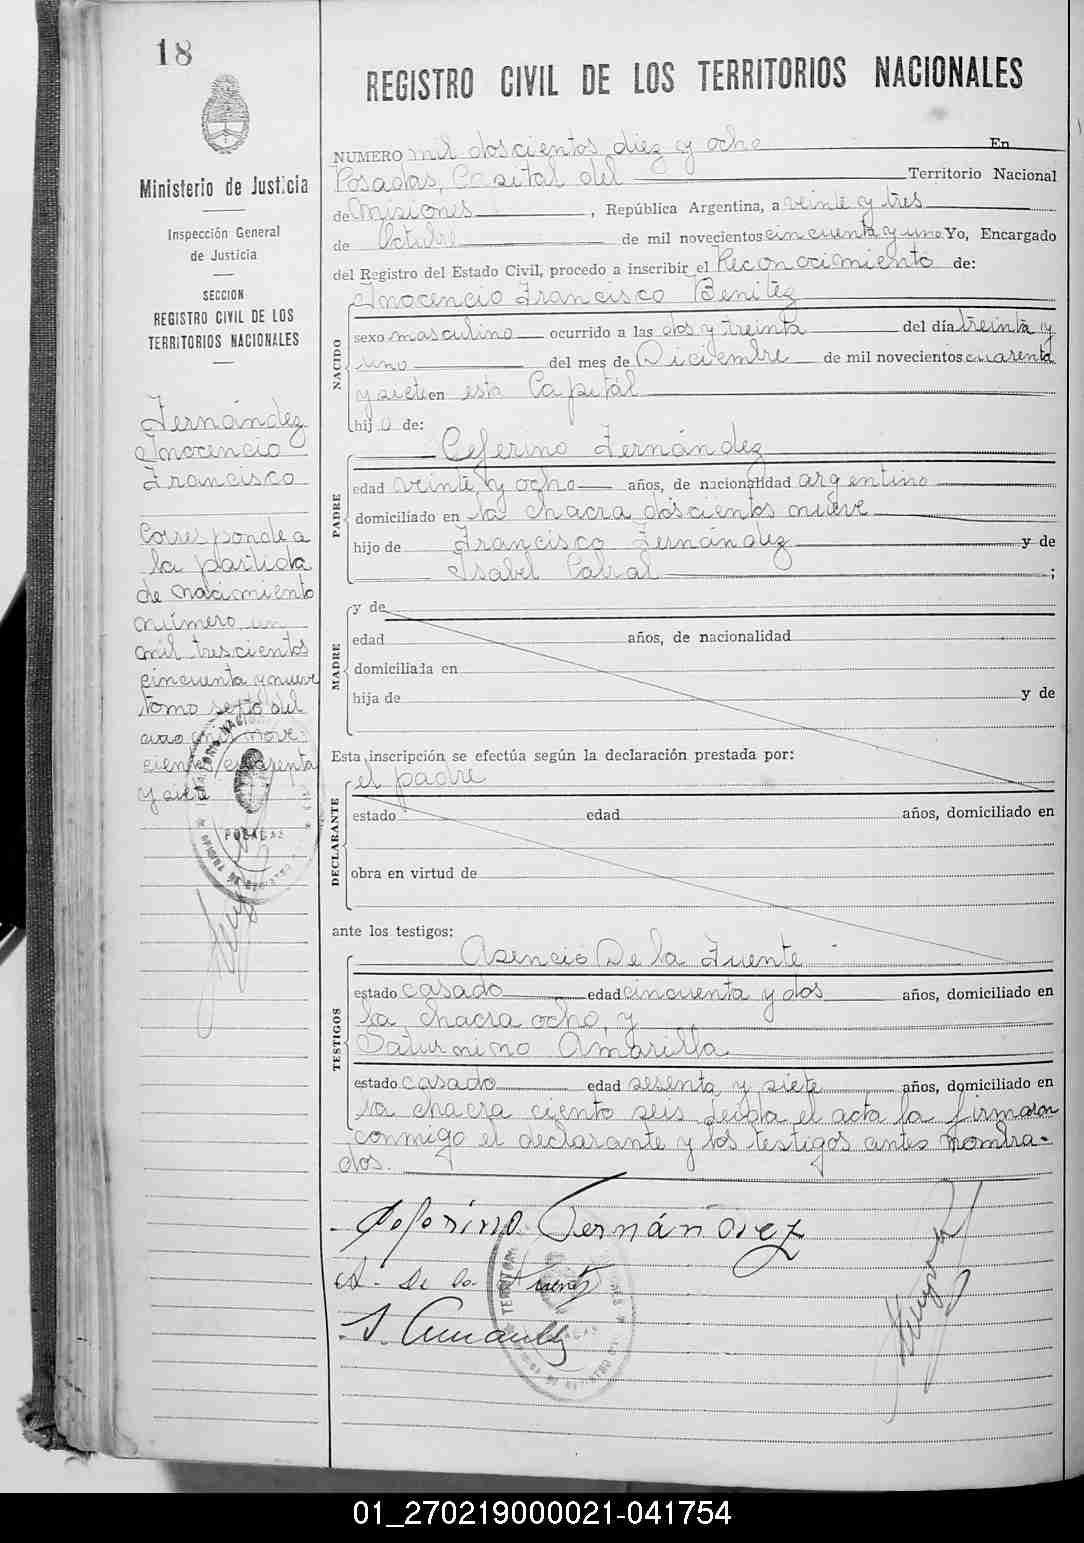 18
REGISTRO CIVIL DE LOS TERRITORIOS NACIONALES
Ministerio de Justicia
Inspección General
de Justicia
SECCION
REGISTRO CIVIL DE LOS
TERRITORIOS NACIONALES
Fernández
Inocencio
Francisco
Corresponde a
la partida
de nacimiento
número un
mil trescientos
cincuenta y nueve
tomo septo del
año mil nove-
cientos cuarenta
y siete
POSADAS
NUMERO mil doscientos diez y ocho En
Posadas, Capital del Territorio Nacional
de Misiones, República Argentina, a veinte y tres
de Octubre de mil novecientos cincuenta y uno Yo, Encargado
del Registro del Estado Civil, procedo a inscribir el Reconocimiento de:
Inocencio Francisco Benitez
NACIDO
sexo masculino ocurrido a las dos y treinta del día treinta y
uno del mes de Diciembre de mil novecientos cuarenta
y siete en esta Capital
hijo de:
Ceferino Fernández
PADRE
edad veinte y ocho años, de nacionalidad argentino
domiciliado en la chacra doscientos nueve
hijo de Francisco Fernández y de
Isabel Cabral ;
MADRE
y de
edad años, de nacionalidad
domiciliada en
hija de y de
Esta inscripción se efectúa según la declaración prestada por:
el padre
DECLARANTE
estado edad años, domiciliado en
obra en virtud de
ante los testigos:
Asencio De la Fuente
TESTIGOS
estado casado edad cincuenta y dos años, domiciliado en
la chacra ocho, y
Saturnino Amarilla
estado casado edad sesenta y siete años, domiciliado en
la chacra ciento seis leída el acta la firmaron
conmigo el declarante y los testigos antes nombra-
dos.
Ceferino Fernández
A. De la Fuente
S. Amarilla
01_270219000021-041754